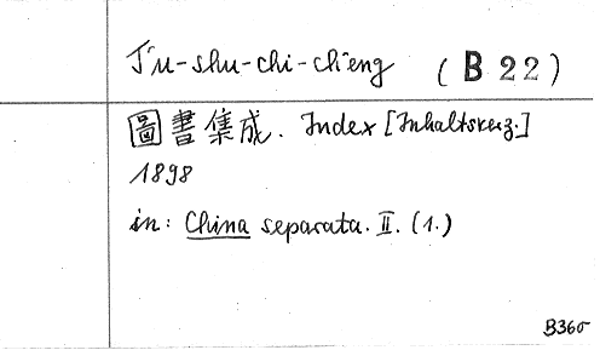 T'u-shu-chi-ch'eng (B 22)
圖書集成. Index [Inhaltsverz.]
1898
in: China separata. II. (1.)
B36σ